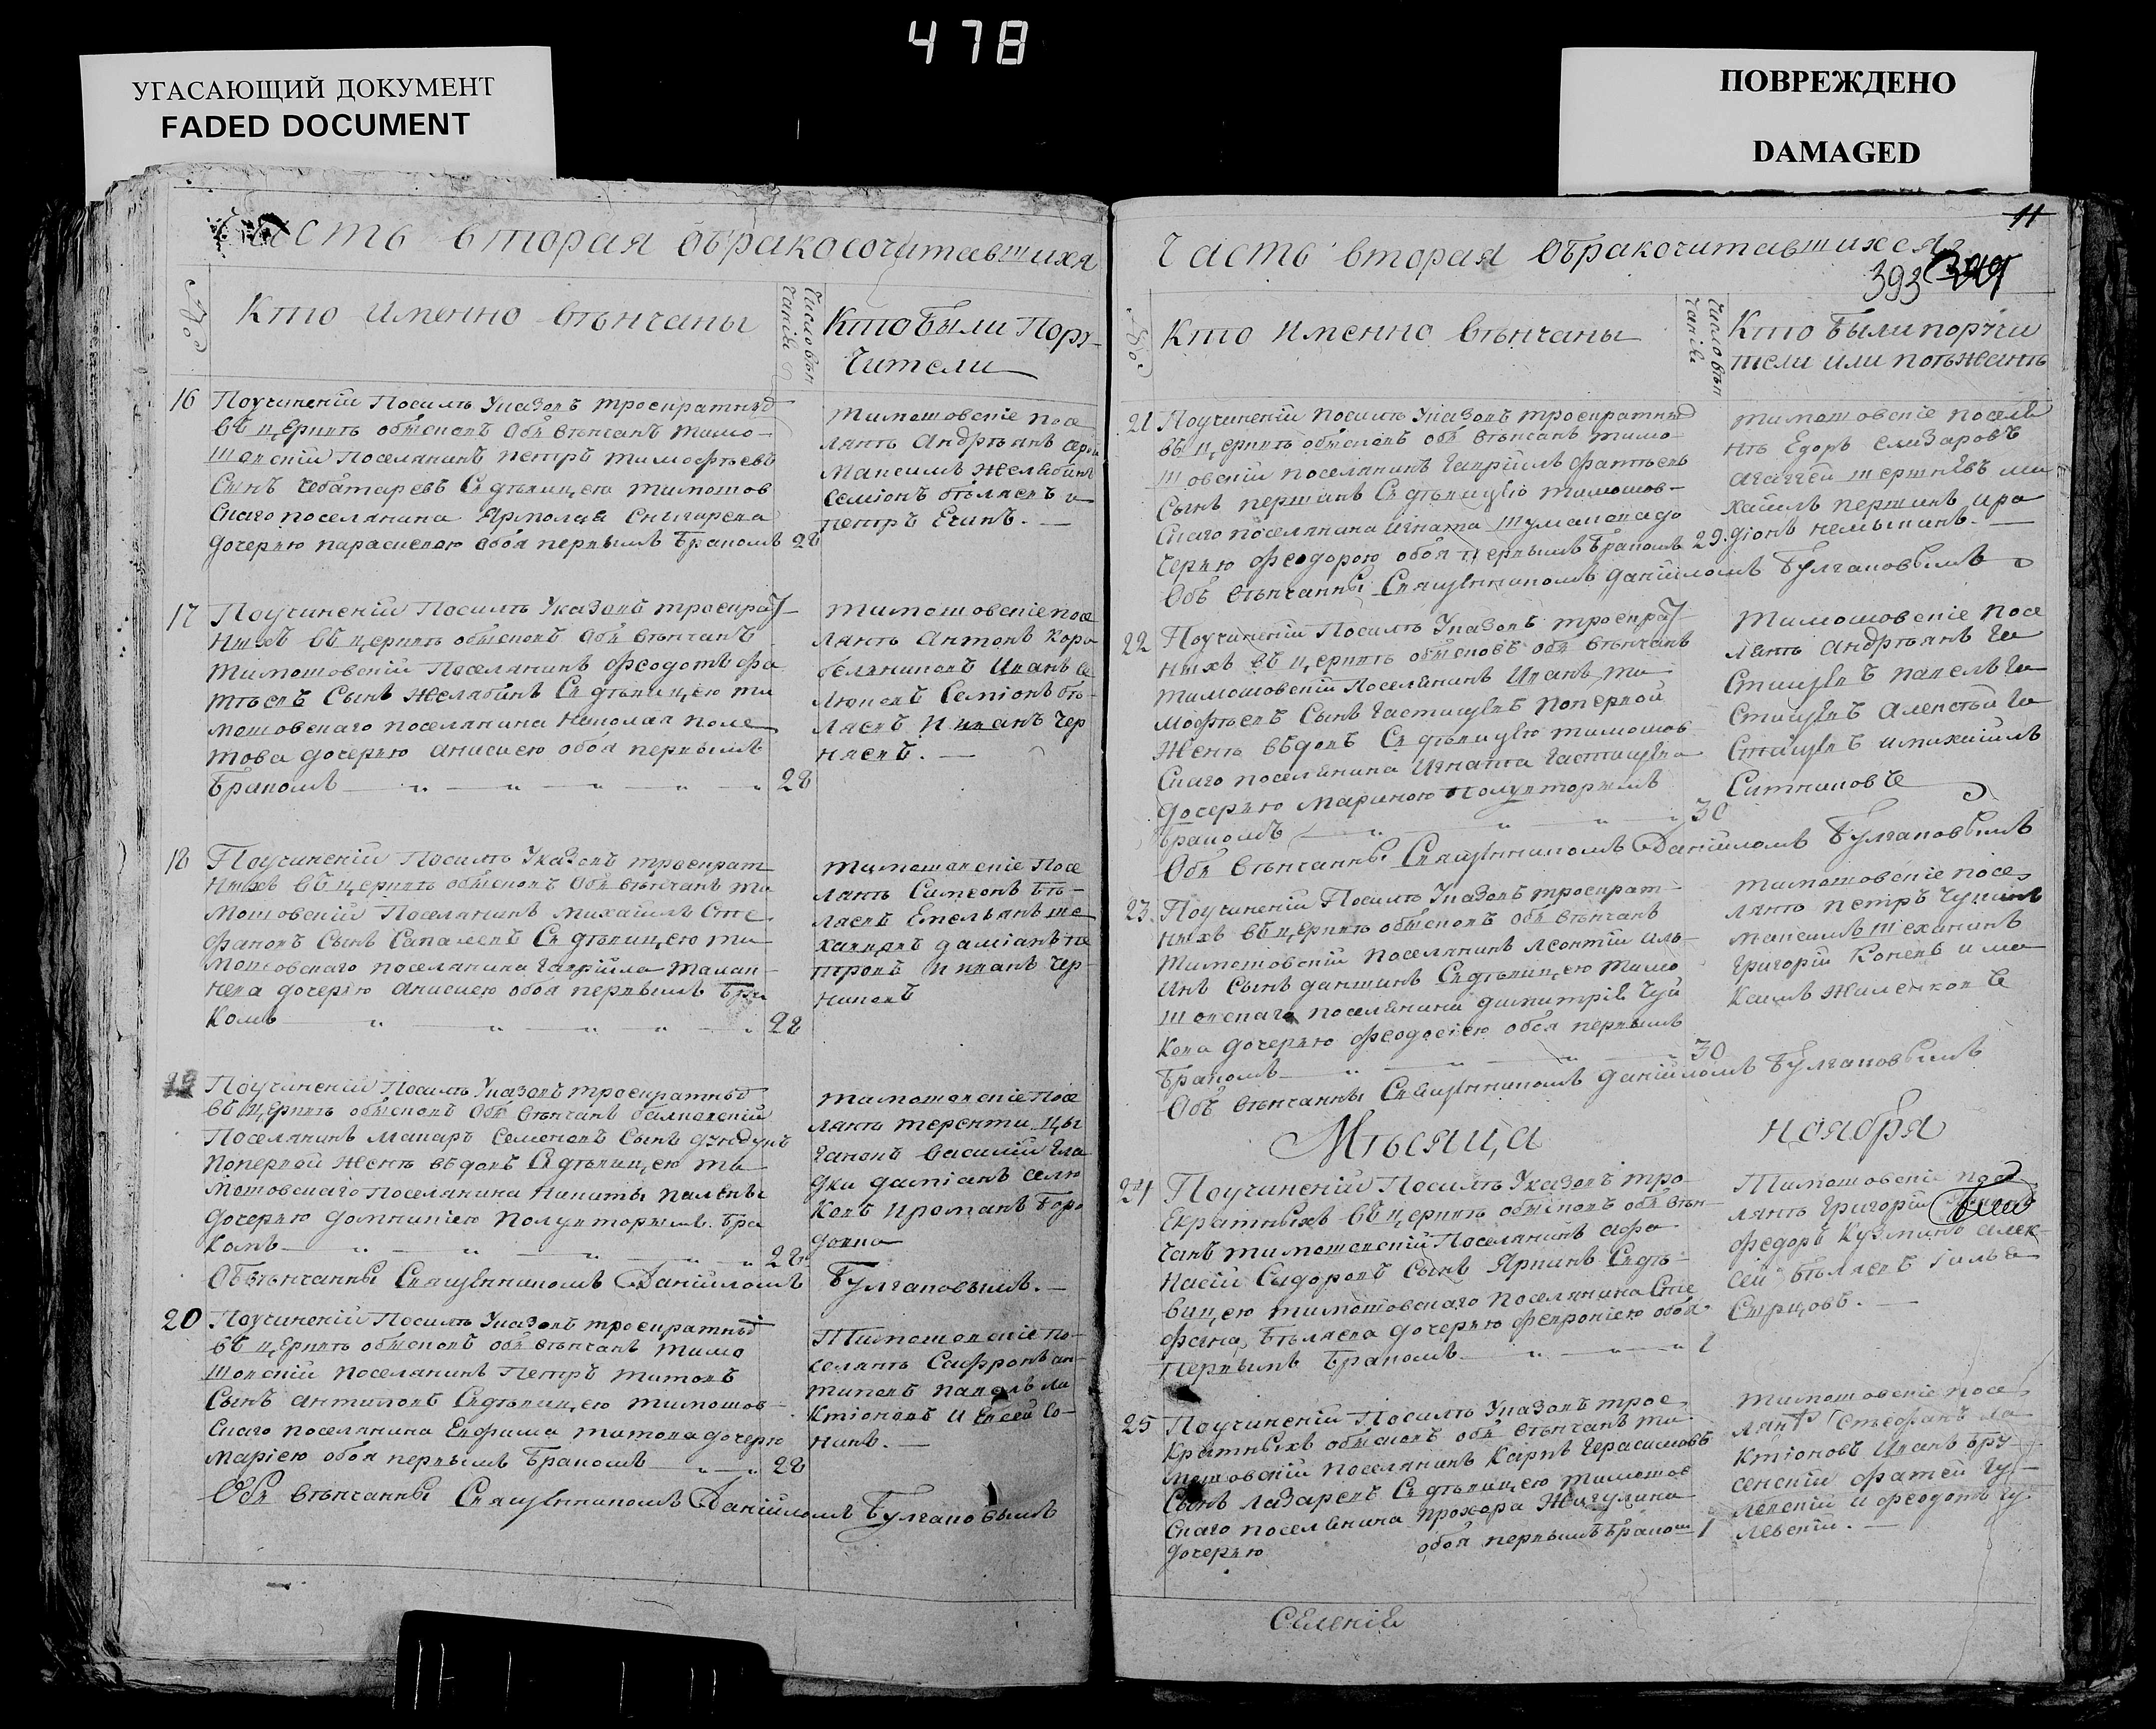 478
УГАСАЮЩИЙ ДОКУМЕНТ
FADED DOCUMENT
ПОВРЕЖДЕНО
DAMAGED
Часть вторая обракосочитавшихся
№
Кто именно вѣнчаны
Число вѣн
чанiй
Кто были Пору-
чители
16
Поучиненiи Посилѣ Указовъ троекратныхъ
въ церквѣ обысковъ Обвѣнчанъ тимо-
шовскiй поселянинъ петръ тимофѣевъ
Сынъ Чеботаревъ Сдѣвицею тимошов
скаго поселянина Ярмолая
дочерью параскевою обоя первымъ бракомъ 28
тимошовскiе посе
лянѣ Андрѣянъ
Максимъ Желябинъ
Семiонъ бѣляевъ и
петръ Ечинъ.
17
Поучиненiи Посилѣ Указовъ троекрат-
ныхъ въ церквѣ обысковъ Обвѣнчанъ
тимошовскiй Поселянинъ Феодотъ Фа
тѣевъ Сынъ Желябинъ Сдѣвицею ти
мошовскаго поселянина Николая поле
това дочерью анисиею обоя первымъ
бракомъ 28
тимошовскiе посе
лянѣ Антонъ Коро
белниковъ Иванъ Се
люковъ Семiонъ бѣ-
ляевъ И иванъ Чер
няевъ.
18
Поучиненiи Посилѣ Указовъ троекрат
ныхъ въ церквѣ обысковъ Обвѣнчанъ ти
мошовскiй Поселянинъ михайлъ Сте
фановъ Сынъ Сапалевъ Сдѣвицею ти
мошовскаго поселянина гаврiйла
дочерью анисиею обоя первымъ бра
комъ 28
тимошовскiе Посе
лянѣ Симеонъ бѣ-
ляевъ Емельянъ
дамiанъ пе
тровъ И иванъ Чер
никовъ
19
Поучиненiи Посилѣ Указовъ троекратныхъ
въ церквѣ обысковъ Обвѣнчанъ
Поселянинъ Макаръ Семеновъ Сынъ
Поперкой женѣ вдовъ Сдѣвицею ти
мошовскаго Поселянина Никиты
дочерью домникiею Полувторымъ бра
комъ 28
тимошовскiе Посе
лянѣ терентiи Цы
гановъ василiй гла
дки дамiанъ селю
ковъ И романъ боро
Обвѣнчанны Священникомъ Данiиломъ Булгаковымъ.
20
Поучиненiи Посилѣ Указовъ троекратныхъ
въ церквѣ обысковъ обвѣнчанъ тимо
шовскiй поселянинъ Петръ титовъ
Сынъ антиповъ Сдѣвицею тимошов-
скаго поселянина Ефима титова дочерью
марiею обоя первымъ бракомъ 28
Тимошовскiе по-
селянѣ Сафронъ ан-
типовъ павелъ ла
ктiоновъ И Евсей Со-
нинъ.
Обвѣнчанны Священникомъ Данiиломъ Булгаковымъ
11
Часть вторая Обракочитавшихся
393
№
Кто именно вѣнчаны
Число вѣн
чанiй
Кто были поручи
тели или потѣженѣ
21
Поучиненiи посилѣ Указовъ троекратныхъ
въ церквѣ обысковъ обвѣнчанъ тимо
шовскiй поселянинъ гаврiилъ Фаттѣевъ
Сынъ першинъ Сдѣвицею тимошов-
скаго поселянина Игната Шумакова до
черью феодорою обоя первымъ бракомъ 29.
тимошовскiе поселя
нѣ Едоръ елизаровъ
ми
хайлъ першинъ иро
дiонъ
Объ вѣнчанны Священникомъ данiиломъ Булгаковымъ
22
Поучиненiи Посилѣ Указовъ троекрат-
ныхъ въ церквѣ обысковъ обвѣнчанъ
тимошовскiй Поселянинъ Иванъ ти
мофѣевъ Сынъ гастищевъ Поперкой
женѣ вдовъ Сдѣвицею тимошов
скаго поселянина Игната гастищева
дочерью мариною полувторымъ
бракомъ 30
Тимошовскiе посе
лянѣ Андрѣянъ га
стищевъ павелъ га
стищевъ Алексѣй га
стищевъ имихайлъ
Ситниковъ
Обвѣнчанны Священникомъ Данiиломъ Булгаковымъ
23.
Поучиненiи Посилѣ Указовъ троекрат-
ныхъ въ церквѣ обысковъ обвѣнчанъ
тимошовскiй поселянинъ леонтiй иль-
инъ Сынъ даншинъ Сдѣвицею тимо
шовскаго поселянина димитрiя Чуй
кова дочерью феодосiею обоя первымъ
бракомъ 30
тимошовскiе посе
лянѣ петръ Чуникъ
максимъ шеханинъ
григорiй Коневъ и ма
ксимъ Жиленковъ
Объ вѣнчанны Священникомъ данiиломъ Булгаковымъ
Мѣсяца ноября
24
Поучиненiи Посилѣ Указовъ тро-
екратныхъ въ церквѣ обысковъ обвѣн-
чанъ тимошовскiй Поселянинъ афо
насiй Сидоровъ Сынъ Яркинъ Сдѣ-
вицею тимошовскаго поселянина Сте
фана бѣляева дочерью февронiею обоя
первымъ бракомъ 1
Тимошовскiе посе
лянѣ Григорiй
федоръ Кузминъ алек-
сѣй бѣляевъ Iилья
Скрцовъ.
25
Поучиненiи Посилѣ Указовъ трое
кратныхъ обысковъ обвѣнчанъ ти
мошовскiй поселянинъ Карпъ Герасимовъ
Сынъ лазаревъ Сдѣвицею тимошов
скаго поселянина прохора Жигулина
дочерью обоя первымъ бракомъ 1
тимошовскiе посе
лянѣ Стефанъ ла
ктiоновъ Иванъ бру
сенскiй фатей гу-
левскiй и феодотъ гу
левскiй.
Селенiя